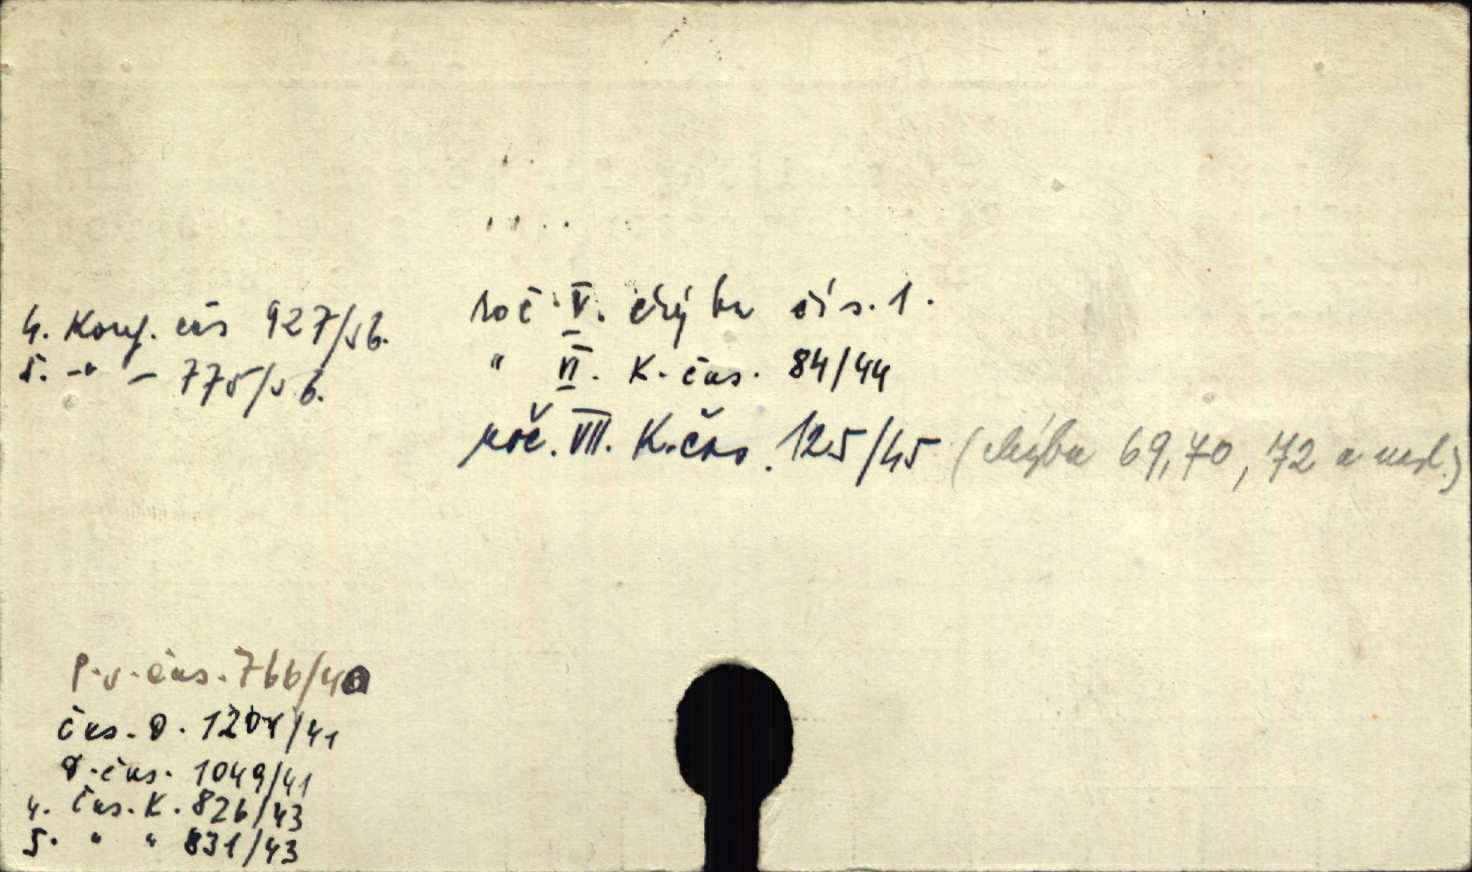 roč. V. chýba čís. 1.
4. Konf. čas 927/56.
" VI. K. čas. 84/44
5. -"- 775/56.
roč. VII. K. čas. 125/45 (chýba 69, 70, 72 a nasl.)
P. v. čas. 766/40
čas. D. 1204/41
D. čas. 1049/41
4. čas. K. 826/43
5. " " 831/43